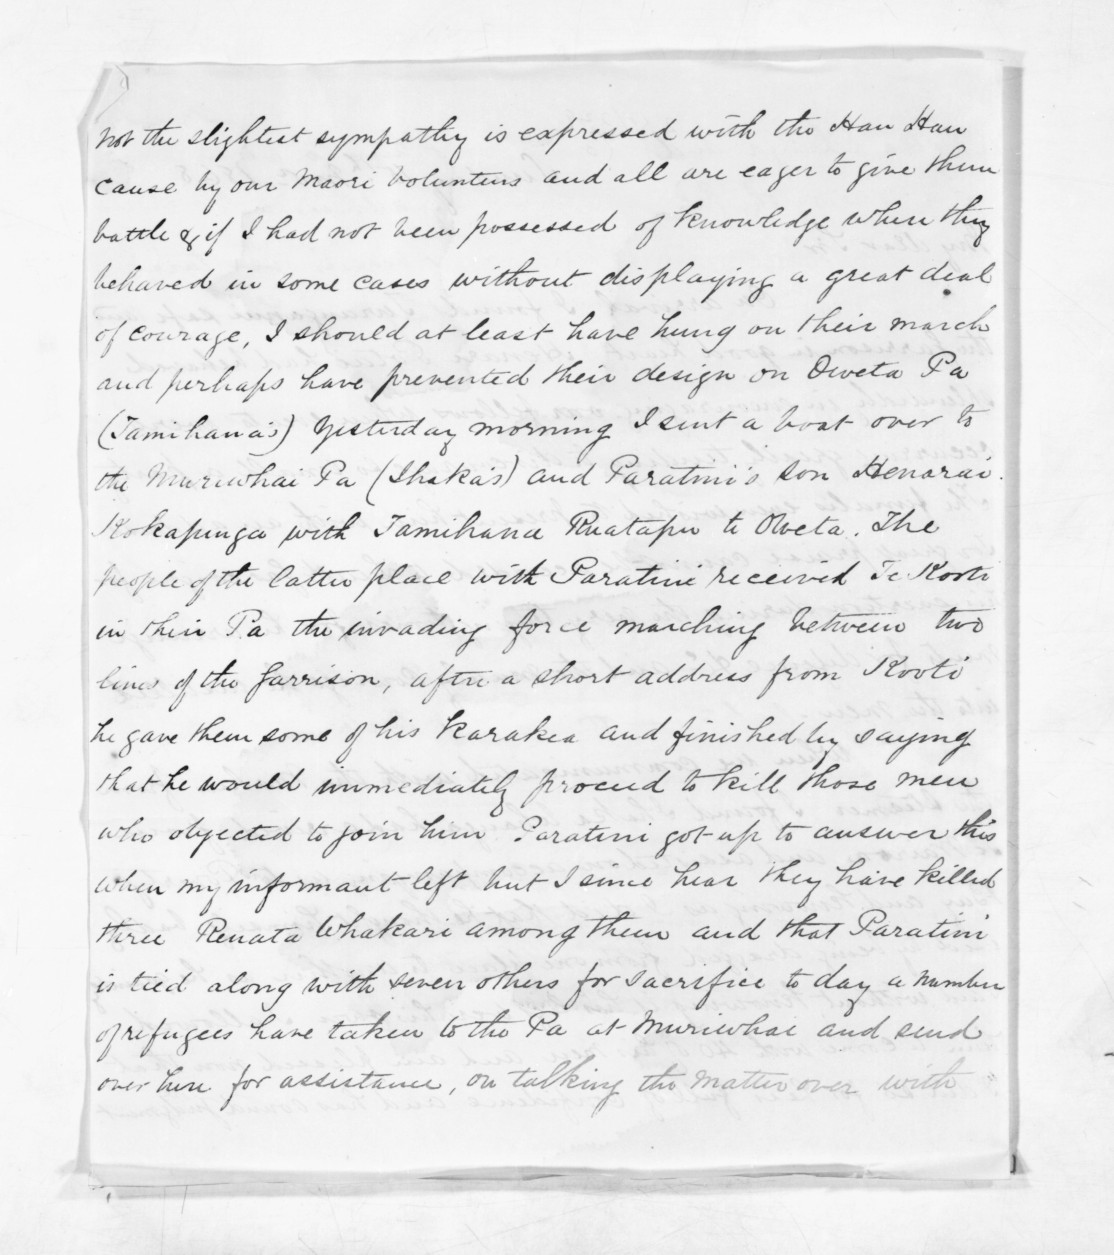 not the slightest sympathy is expressed with the Hau Hau
cause by our Maori Volunteers and all are eager to give them
battle & if I had not been possessed of knowledge when they
behaved in some cases without displaying a great deal
of courage, I should at least have hung on their march
and perhaps have prevented their design on Oweta Pa
(Tamihana's) Yesterday morning I sent a boat over to
the Muriwhai Pa (Ihaka's) and Paratini's son Henarai.
Kokapunga with Tamihana Ruatapu to Oweta. The
people of the latter place with Paratini received Te Kooti
in their Pa the invading force marching between two
lines of the Garrison, after a short address from Kooti
he gave them some of his Karakea and finished by saying
that he would immediately proceed to kill those men
who objected to join him Paratini got up to answer this
when my informant left but I since hear they have killed
three Renata Whakari among them and that Paratini
is tied along with seven others for sacrifice to day a number
of refugees have taken to the Pa at Muriwhai and send
over here for assistance, on talking the matter over with